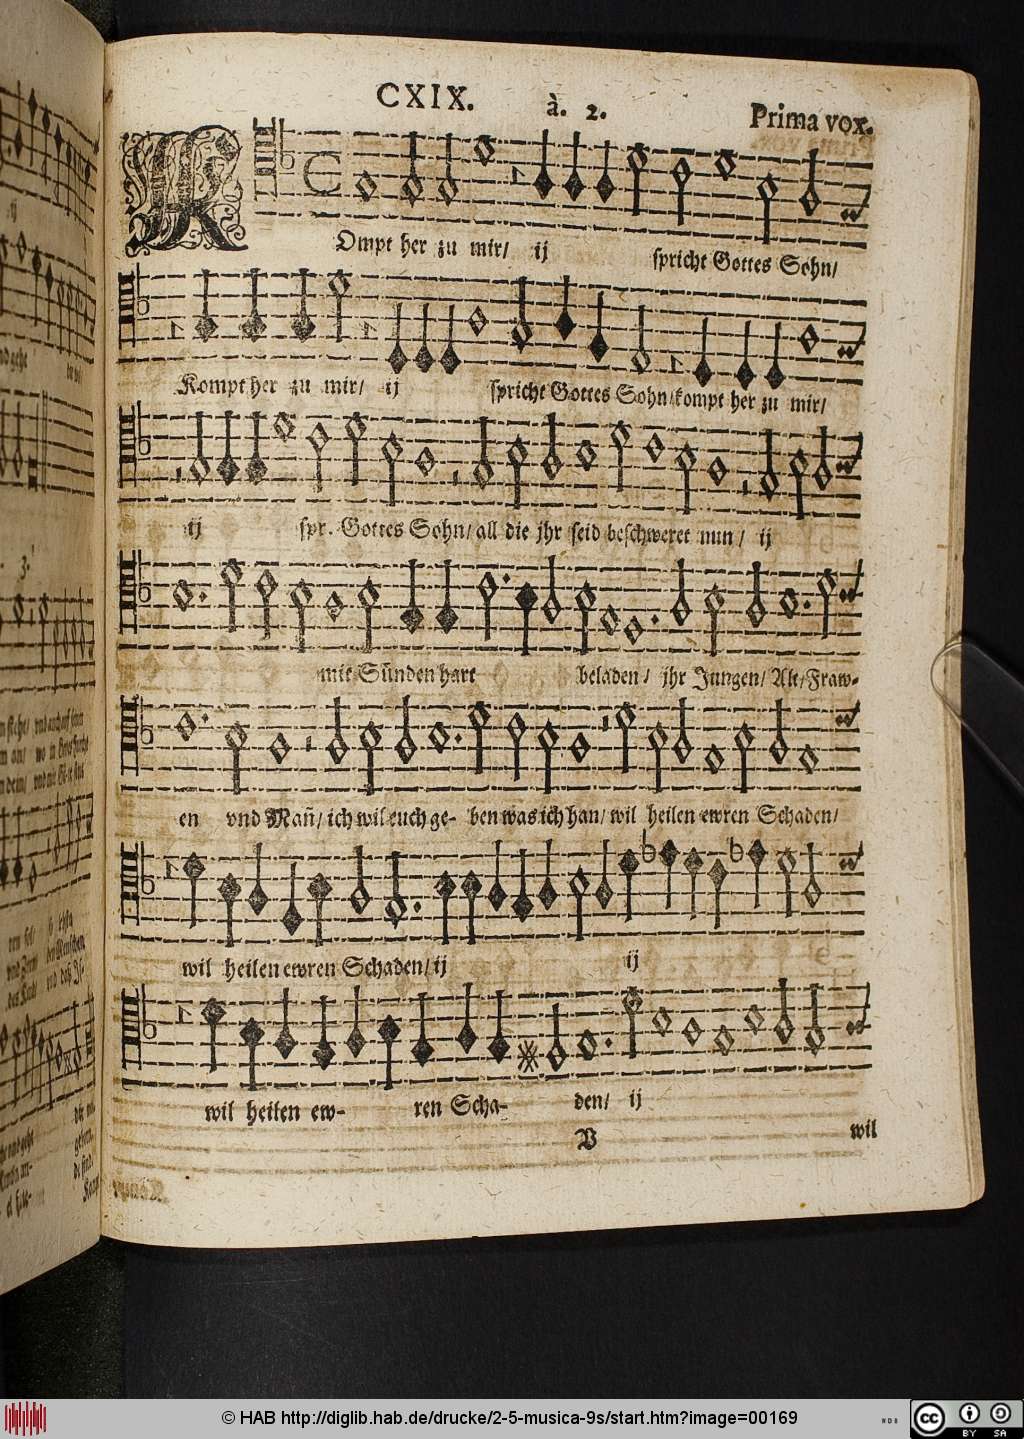 CXIX. à. 2. Prima vox.
KOmpt her zu mir/ ij spricht Gottes Sohn/
Kompt her zu mir/ ij spricht Gottes Sohn/kompt her zu mir/
ij spr. Gottes Sohn/ all die jhr seid beschweret nun/ ij
mit Sünden hart beladen/ jhr Jungen/ Alt/ Fraw-
en vnd Mañ/ ich wil euch ge- ben was ich han/ wil heilen ewren Schaden/
wil heilen ewren Schaden/ ij ij
wil heilen ew- ren Scha- den/ ij
V wil
© HAB http://diglib.hab.de/drucke/2-5-musica-9s/start.htm?image=00169
cc BY SA